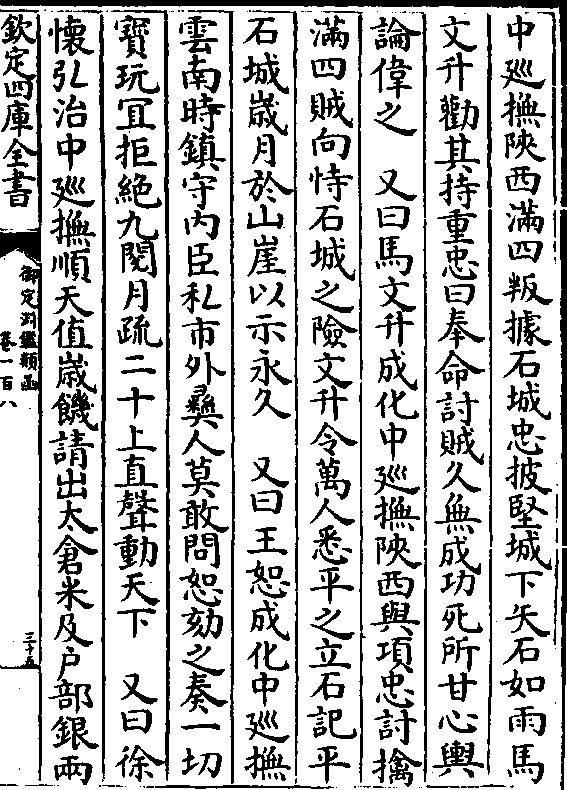 中廵撫陝西滿四叛據石城忠披堅城下矢石如雨馬
文升勸其持重忠曰奉命討賊久無成功死所甘心輿
論偉之　又曰馬文升成化中廵撫陝西與項忠討擒
滿四賊向恃石城之險文升令萬人悉平之立石記平
石城嵗月於山崖以示永久　又曰王恕成化中廵撫
雲南時鎮守内臣私市外彛人莫敢問恕劾之奏一切
寳玩宜拒絶九閲月疏二十上直聲動天下　又曰徐
懐弘治中廵撫順天值嵗饑請出太倉米及戸部銀兩
欽定四庫全書
御定淵鑑類函
卷一百八
三十五